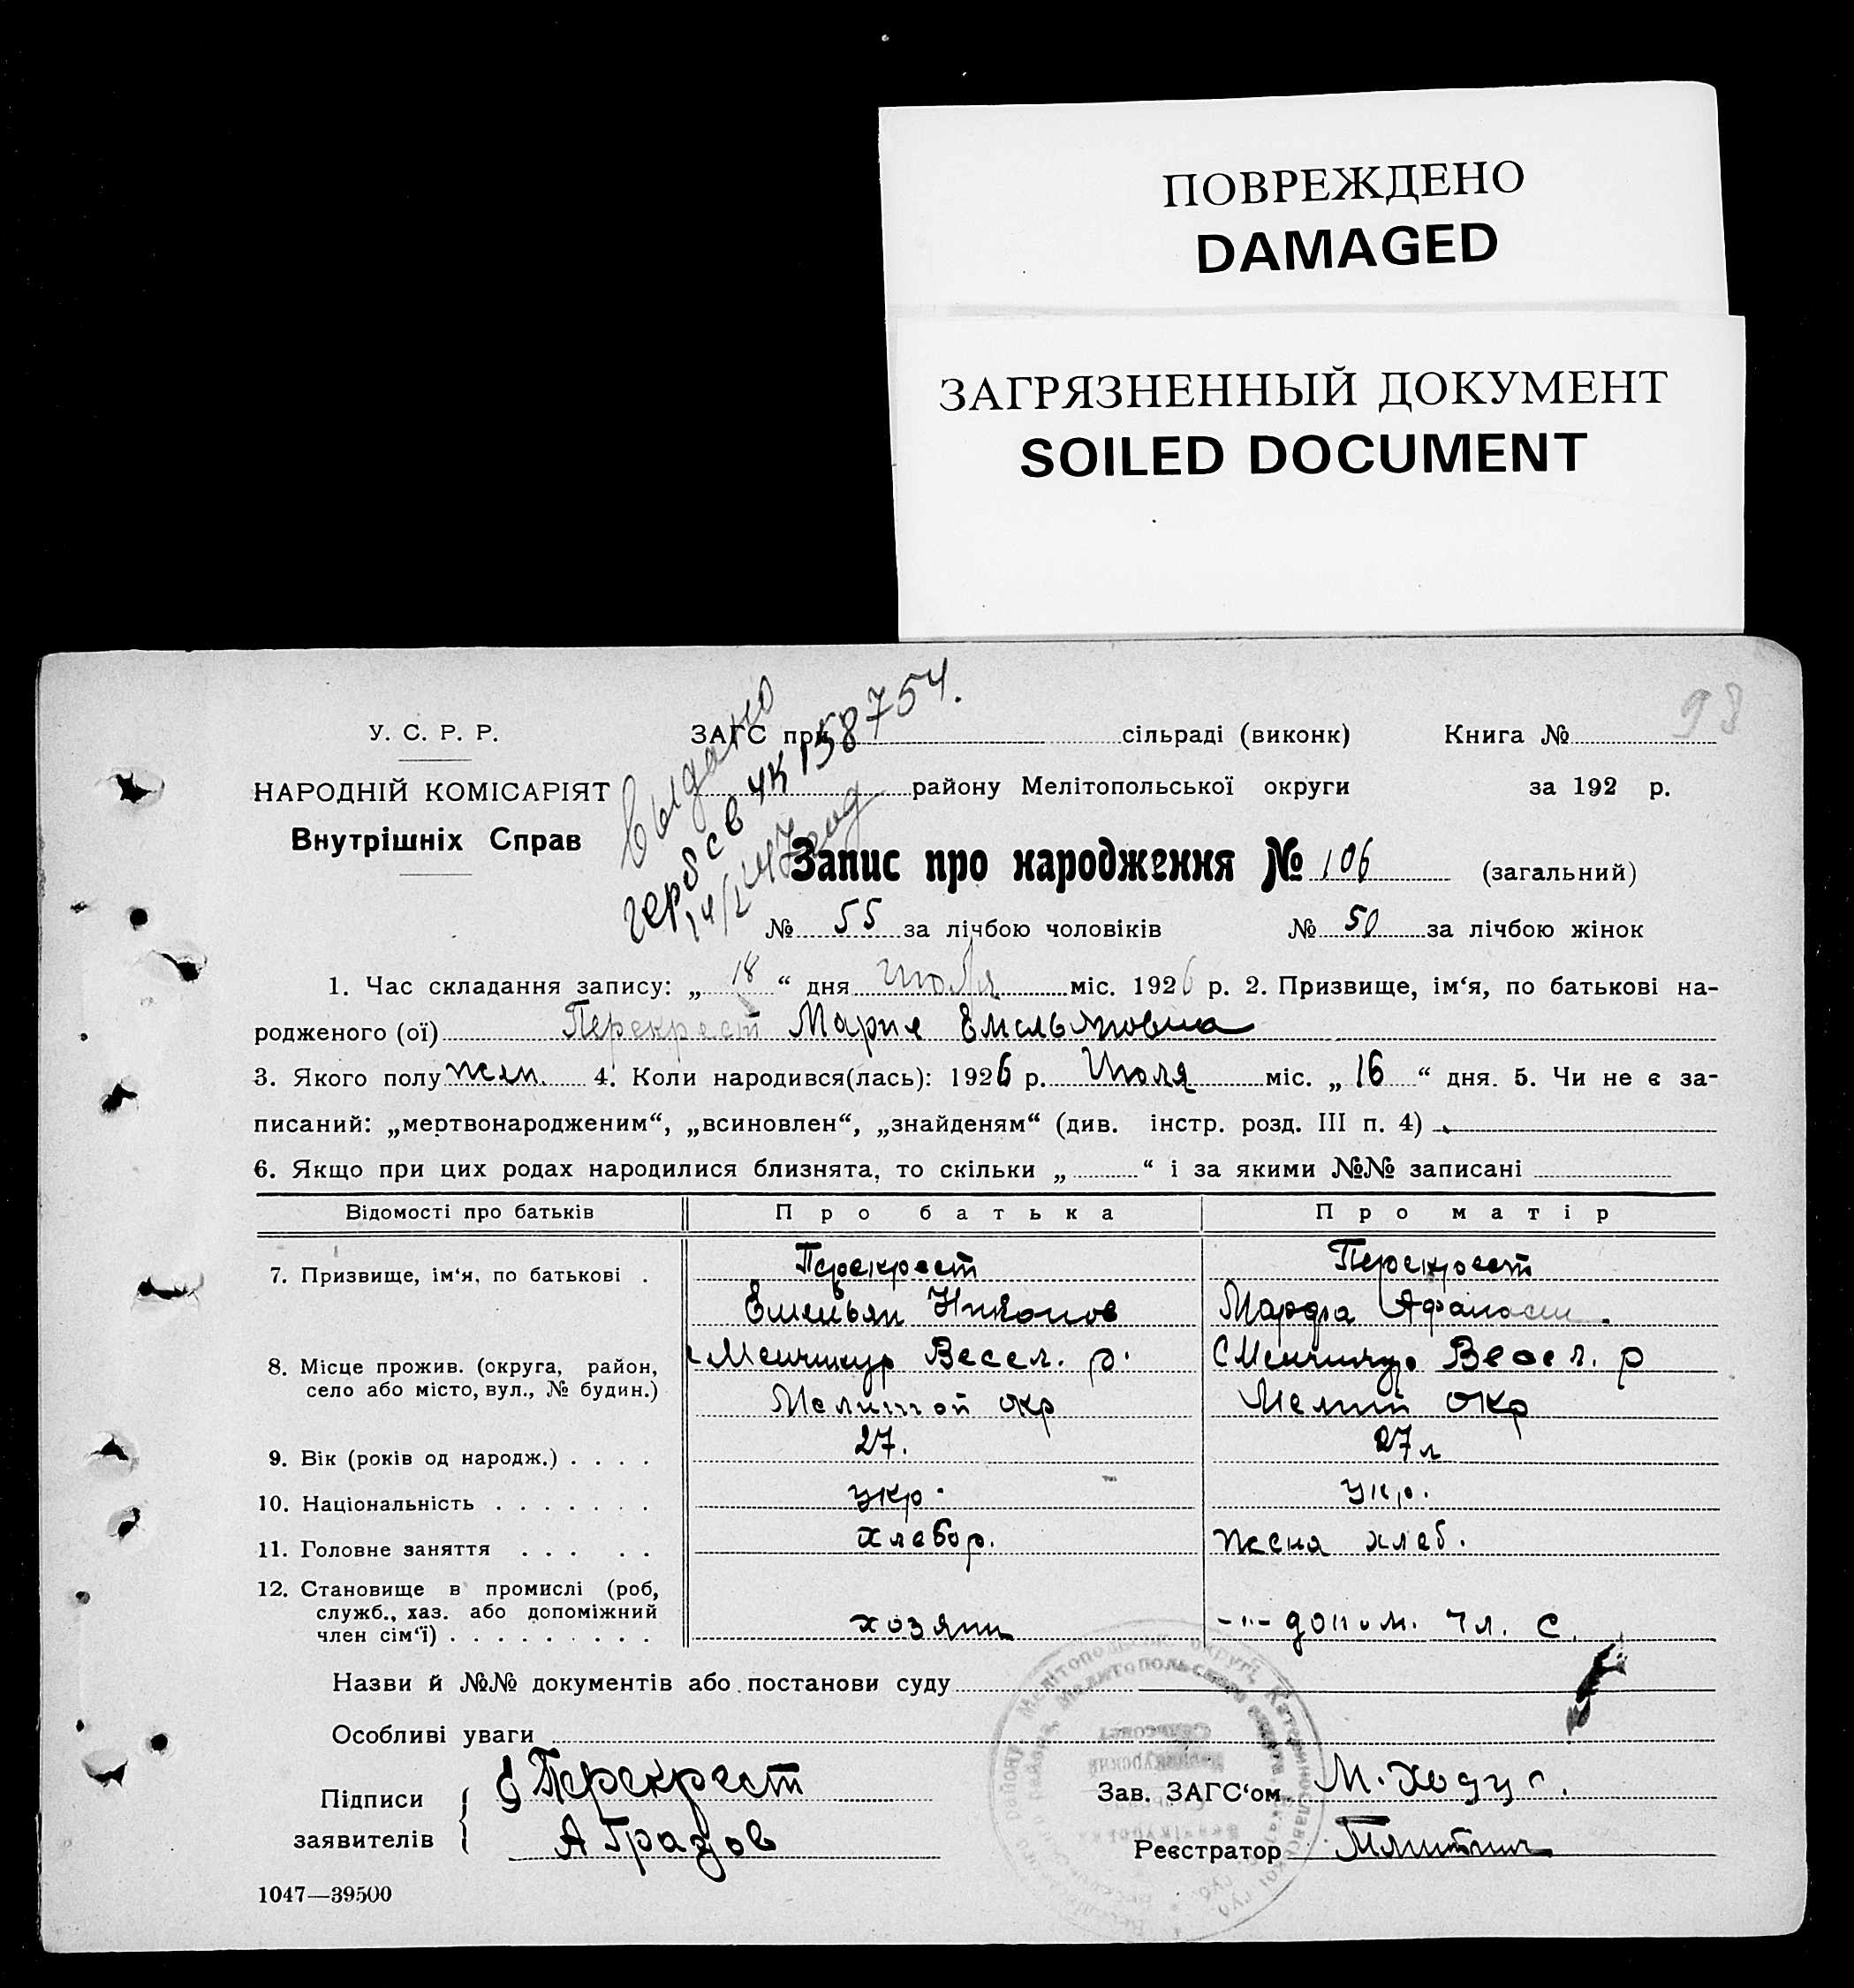 ПОВРЕЖДЕНО
DAMAGED
ЗАГРЯЗНЕННЫЙ ДОКУМЕНТ
SOILED DOCUMENT
98
У. С. Р. Р.
НАРОДНІЙ КОМІСАРІЯТ
Внутрішніх Справ
выдано
герб св ЧК 158754.
ЗАГС при сільраді (виконк) Книга №
району Мелітопольської округи за 192 р.
Запис про народження № 106 (загальний)
№ 55 за лічбою чоловіків № 50 за лічбою жінок
1. Час складання запису: „ 18 “ дня июля міс. 1926 р. 2. Призвище, ім‘я, по батькові на-
родженого (ої) Перекрест Мария Емельяновна
3. Якого полу жен. 4. Коли народився(лась): 1926 р. Июля міс. „ 16 “ дня. 5. Чи не є за-
писаний: „мертвонародженим“, „всиновлен“, „знайденям“ (див. інстр. розд. III п. 4)
6. Якщо при цих родах народилися близнята, то скільки „ “ і за якими №№ записані
Відомості про батьків Про батька Про матір
7. Призвище, ім‘я, по батькові . Перекрест Перекрест
Емельян Никонов Марфа Афанаси.
8. Місце прожив. (округа, район, Менчикур Весел. р. С Менчикур Весел. р
село або місто, вул., № будин.) Мелитоп окр Мелит окр
9. Вік (років од народж.) . . . . 27. 27 л
10. Національність . . . . . . . укр. укр.
11. Головне заняття . . . . . хлебор. жена хлеб.
12. Становище в промислі (роб,
служб., хаз. або допоміжний
член сім‘ї) . . . . . . . . . хозяин -"- допом. чл. с.
Назви й №№ документів або постанови суду
Особливі уваги
Підписи Перекрест Зав. ЗАГС‘ом М. Ходус.
заявителів А Градов Реєстратор
1047—39500